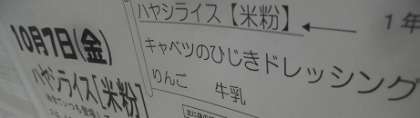 10月7日(金)
ハヤシライス【米粉】
ハヤシライス【米粉】
１年
キャベツのひじきドレッシング
りんご 牛乳